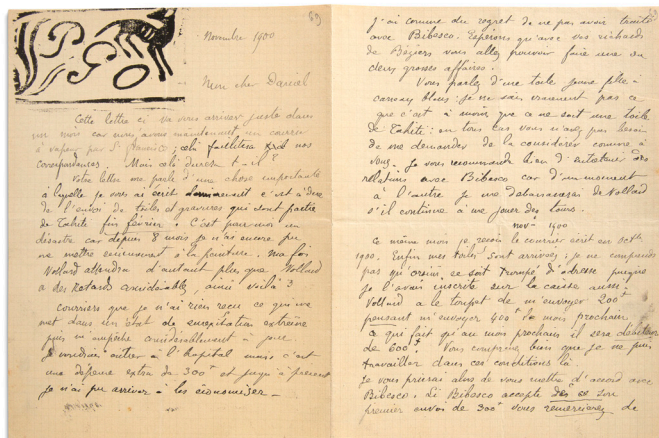 59
Novembre 1900
Mon cher Daniel
Cette lettre ci va vous arriver juste dans
un mois car nous avons maintenant un courrier
à vapeur par S. Francisco; cela facilitera nos
correspondances. Mais cela durera t-il?
Votre lettre me parle d'une chose importante
à laquelle je vous ai écrit c'est à dire
de l'envoi de toiles et gravures qui sont parties
de Tahiti fin février. C'est pour moi un
désastre car depuis 8 mois je n'ai encore pu
me mettre sérieusement à la peinture. Ma foi
Vollard attendra d'autant plus que Vollard
a des retards considérables, ainsi voilà?
Courriers que je n'ai rien reçu ce qui me
met dans un état de surexcitation extrême
qui m'empêche considérablement à
Je voudrais entrer à l'hôpital mais c'est
une dépense extra de 300f et jusqu'à présent
je n'ai pu arriver à les économiser -
J'ai comme du regret de ne pas avoir traité
avec Bibesco. Espérons qu'avec vos richards
de Béziers vous allez pouvoir faire une ou
deux grosses affaires.
Vous parlez d'une toile jaune fille à
carreaux bleus: je ne sais vraiment pas ce
que c'est à moins que ce ne soit une toile
de Tahiti: en tous cas vous n'avez pas besoin
de me demander de la considérer comme à
vous. Je vous recommande bien d'entretenir des
relations avec Bibesco car d'un moment
à l'autre je me débarrasserai de Vollard
s'il continue à me jouer des tours.
nov- 1900
Ce même mois je reçois le courrier écrit en octb
1900. Enfin mes toiles sont arrivées; je ne comprends
pas qu' se soit trompé d'adresse puisque
je l'avais inscrite sur la caisse aussi.
Vollard a le toupet de m'envoyer 200f
pensant m'envoyer 400f le mois prochain
ce qui fait qu'au mois prochain il sera débiteur
de 600f. Vous comprenez bien que je ne puis
travailler dans ces conditions là.
Je vous prierai alors de vous mettre d'accord avec
Bibesco. Si Bibesco accepte dès ce son
premier envoi de 300f vous remercierez de